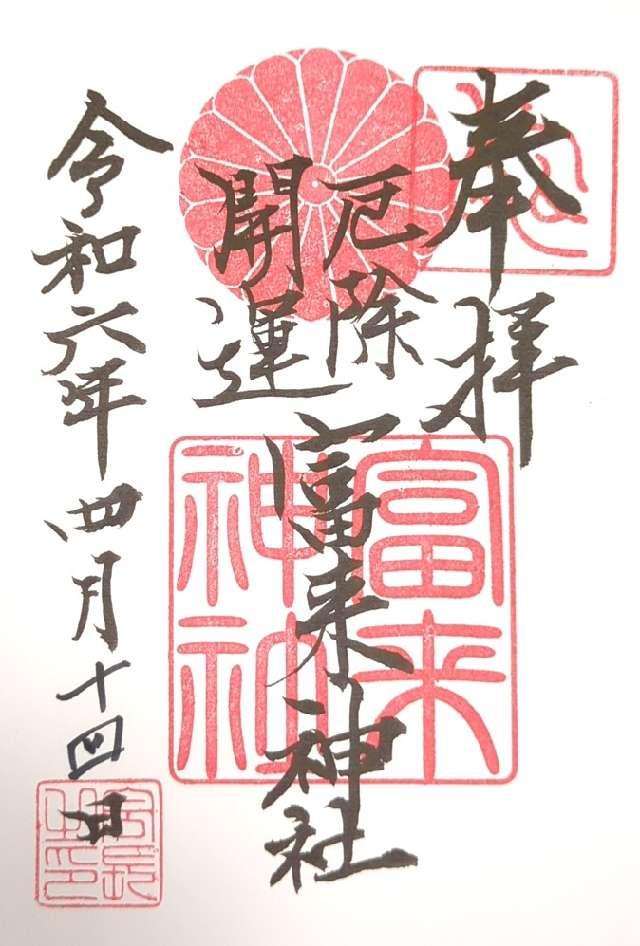 奉拝
厄除
開運
富来神社
令和六年四月十四日
富来
神社